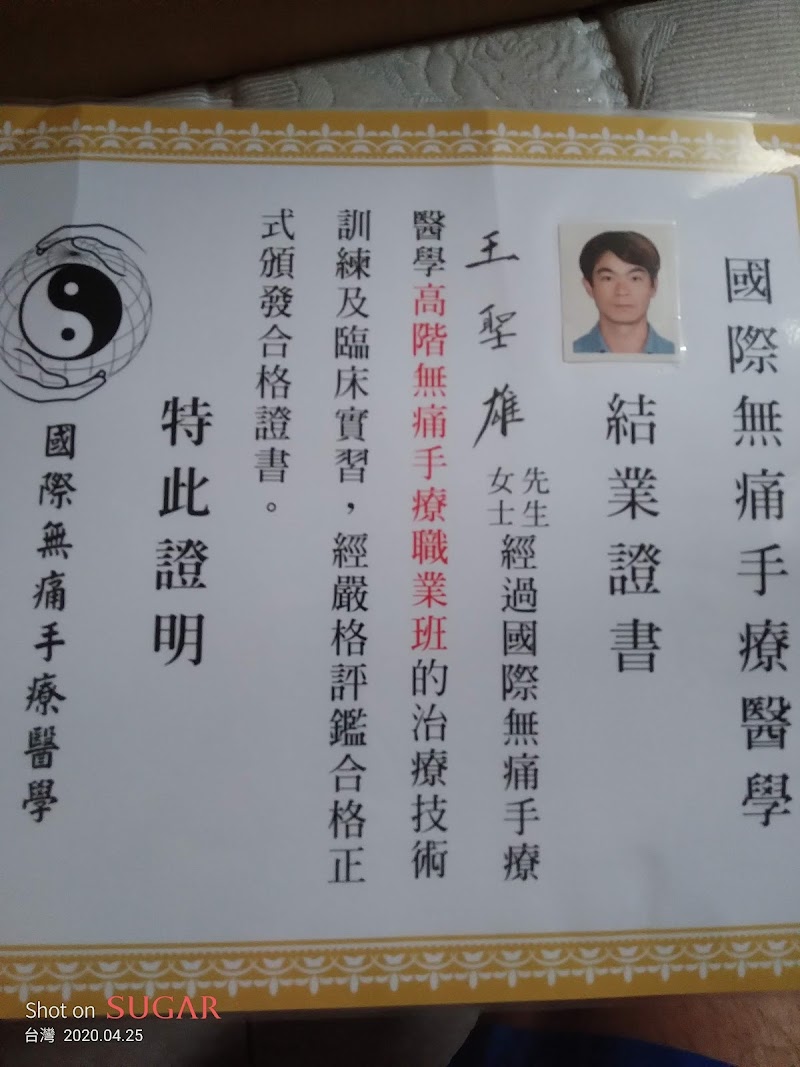 國際無痛手療醫學
結業證書
王聖雄 先生
女士 經過國際無痛手療
醫學高階無痛手療職業班的治療技術
訓練及臨床實習，經嚴格評鑑合格正
式頒發合格證書。
特此證明
國際無痛手療醫學
Shot on SUGAR
台灣 2020.04.25